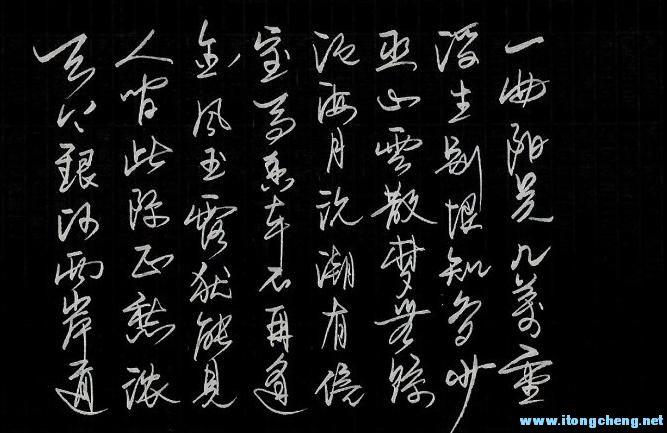 一曲阳关几萬重
浮生别恨知多少
巫山雲散梦無踪
沧海月沉潮有信
宝马香车不再逢
金风玉露犹能见
人间此际正愁浓
天银河两岸通
www.itongcheng.net